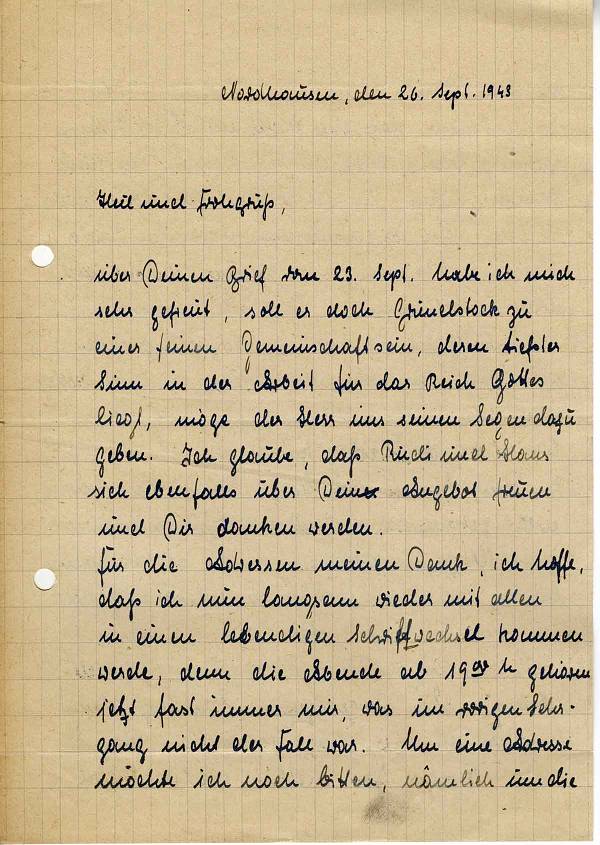 Nordhausen, den 26. Sept. 1943
Heil und Frohgruß,
über Deinen Brief vom 23. Sept. habe ich mich
sehr gefreut, soll es doch Grundstock zu
einer feinen Gemeinschaft sein, deren tiefster
Sinn in der Arbeit für das Reich Gottes
liegt, möge der Herr uns seinen Segen dazu
geben. Ich glaube, daß Rudi und Klaus
sich ebenfalls über Dein Angebot freuen
und Dir danken werden.
Für die Adressen meinen Dank, ich hoffe,
daß ich nun langsam wieder mit allen
in einen lebendigen Schriftwechsel kommen
werde, denn die Abende ab 19⁰⁰ h gehören
jetzt fast immer mir, was im vorigen Lehr-
gang nicht der Fall war. Um eine Adresse
möchte ich noch bitten, nämlich um die